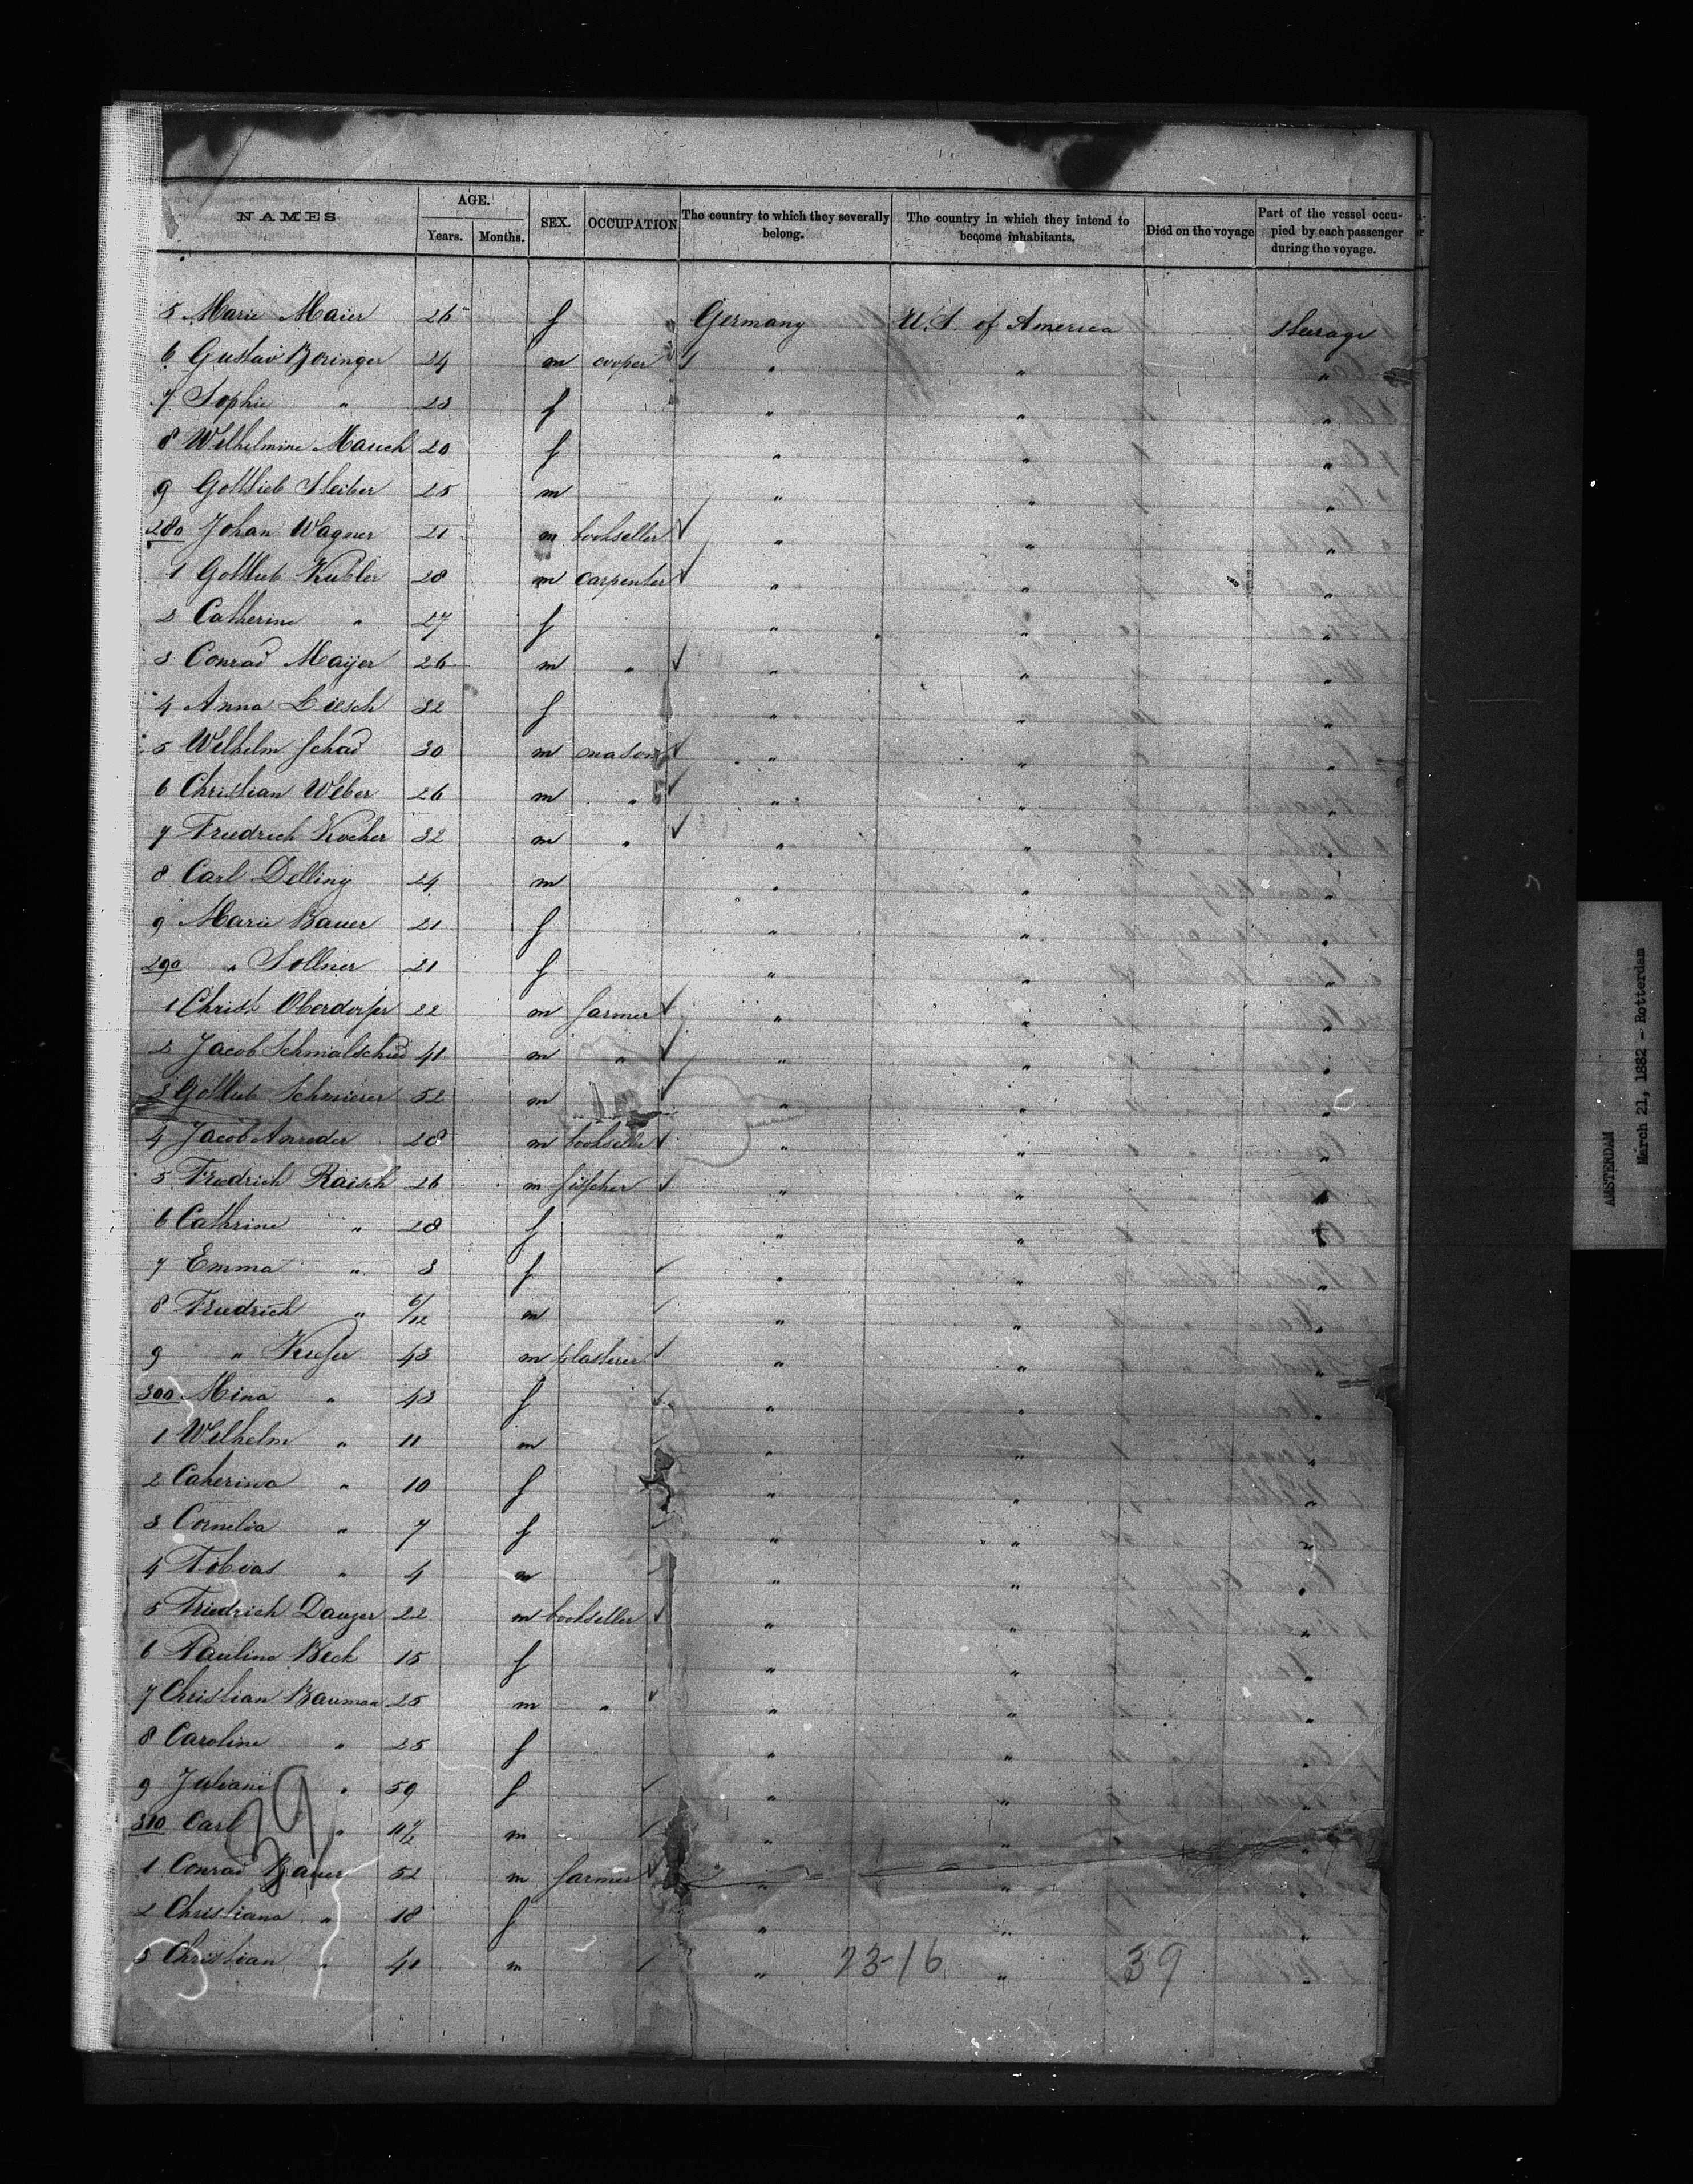 NAMES AGE. SEX. OCCUPATION The country to which they severally belong. The country in which they intend to become inhabitants. Died on the voyage Part of the vessel occupied by each passenger during the voyage.
Years. Months.
5 Marie Maier 26 f Germany U.S. of America stearage
6 Gustav Beringer 24 m cooper " " "
7 Sophie " 23 f " " "
8 Wilhelmine Mauch 20 f " " "
9 Gottlieb Sleiber 25 m " " "
280 Johan Wagner 21 m bookseller " " "
1 Gottlieb Kubler 28 m carpenter " " "
2 Catherine " 27 f " " "
3 Conrad Maijer 26 m " " " "
4 Anna Liesch 32 f " " "
5 Wilhelm Schad 30 m mason " " "
6 Christian Weber 26 m " " " "
7 Friedrich Kocher 32 m " " " "
8 Carl Delling 24 m " " "
9 Marie Bauer 21 f " " "
290 " Sollner 21 f " " "
1 Christ Oberdorfer 22 m farmer " " "
2 Jacob Schmalschied 41 m " " " "
3 Gottlieb Schmierer 52 m " " "
4 Jacob Anreder 28 m bookseller " " "
5 Friedrich Raisch 26 m fisscher " "
6 Cathrine " 28 f " "
7 Emma " 3 f " " "
8 Friedrich " 6/12 m " " "
9 " Kiefer 43 m plasterer " " "
300 Mina " 43 f " " "
1 Wilhelm " 11 m " " "
2 Caherina " 10 f " " "
3 Cornelia " 7 f " " "
4 Tobias " 4 m " " "
5 Friedrich Dauger 22 m bookseller " " "
6 Pauline Beck 15 f " " "
7 Christian Bauman 25 m " " " "
8 Caroline " 25 f " " "
9 Juliane " 59 f " " "
310 Carl " m " " "
1 Conrad Bauer 52 m farmer " " "
2 Christiana " 18 f " " "
3 Christian " 40 m " " "
39
23-16 39
AMSTERDAM
March 21, 1882 - Rotterdam